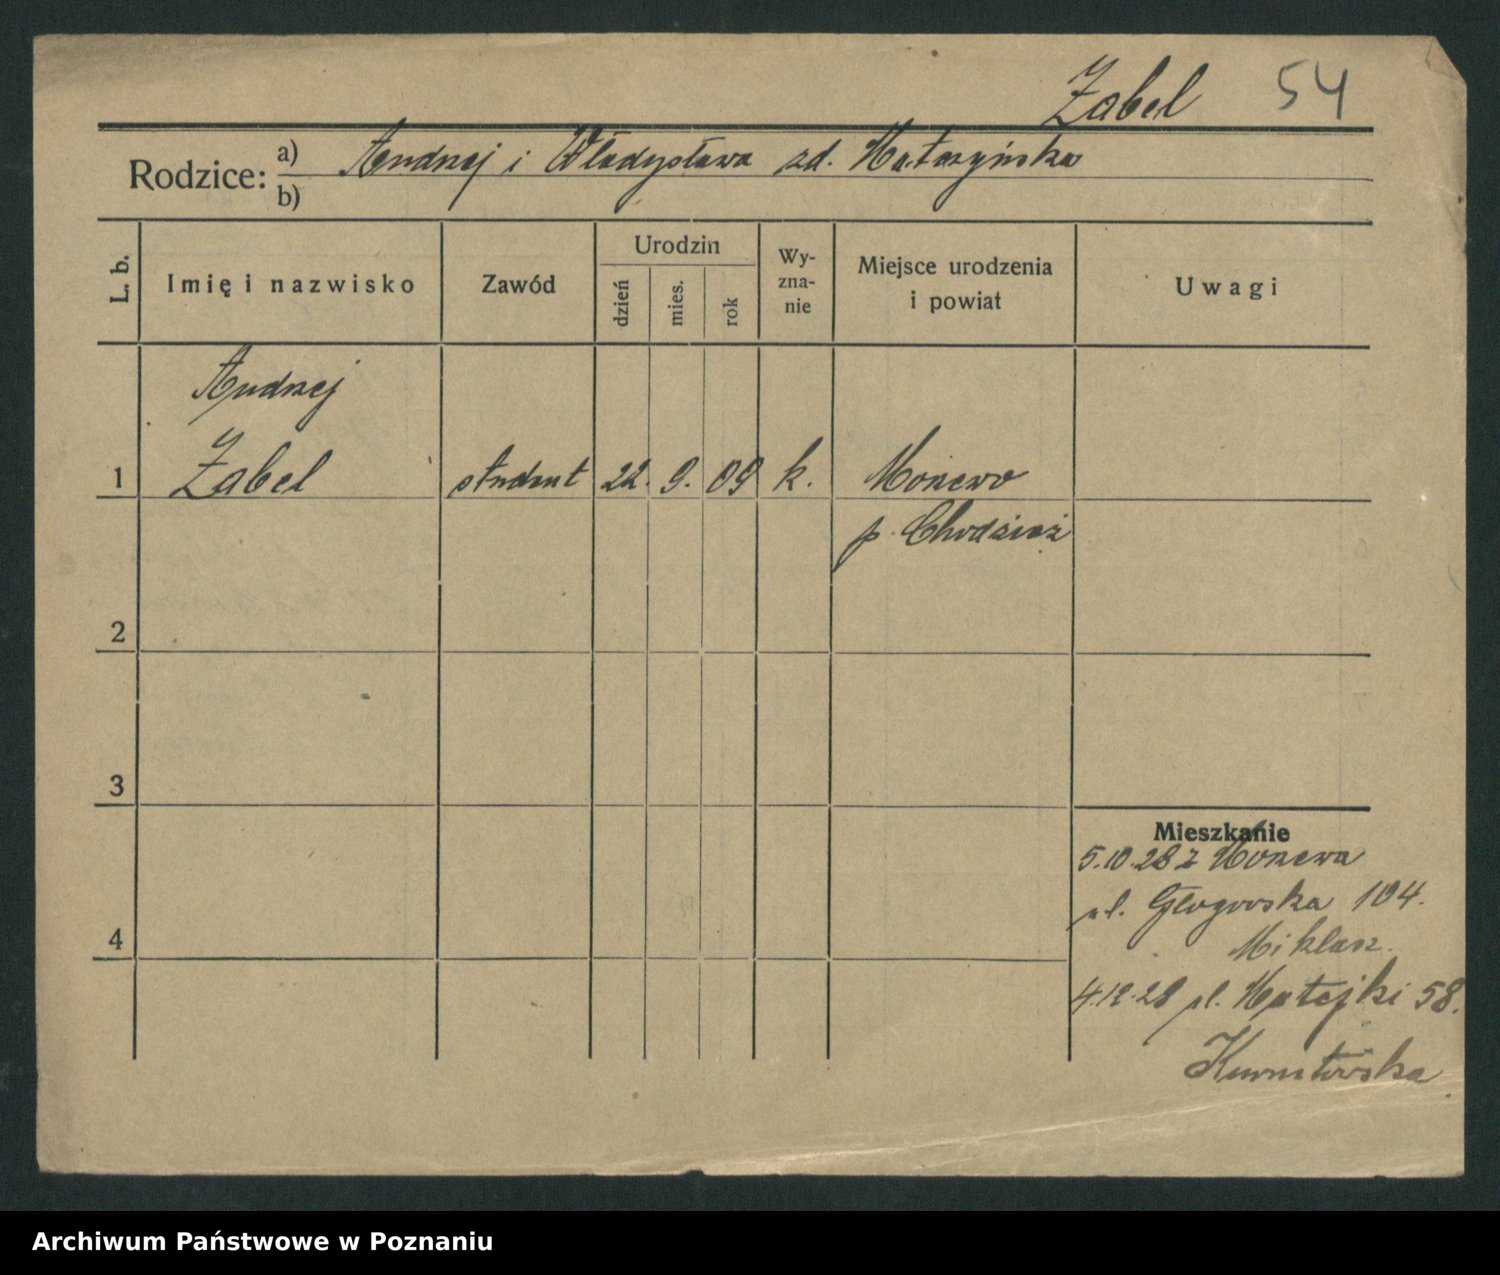 Zabel 54
Rodzice: a) Andrzej i Władysława zd. Mutszyńska
b)
L. b.
Imię i nazwisko
Zawód
Urodzin
dzień
mies.
rok
Wy-
zna-
nie
Miejsce urodzenia
i powiat
Uwagi
Andrzej
1 Zabel student 22. 9. 09 k. Morzewo
p. Chodzież
2
3
4
Mieszkanie
5.10.28 z Morzewa
ul. Głogowska 104.
4.12.28 ul. Matejki 58.
Archiwum Państwowe w Poznaniu